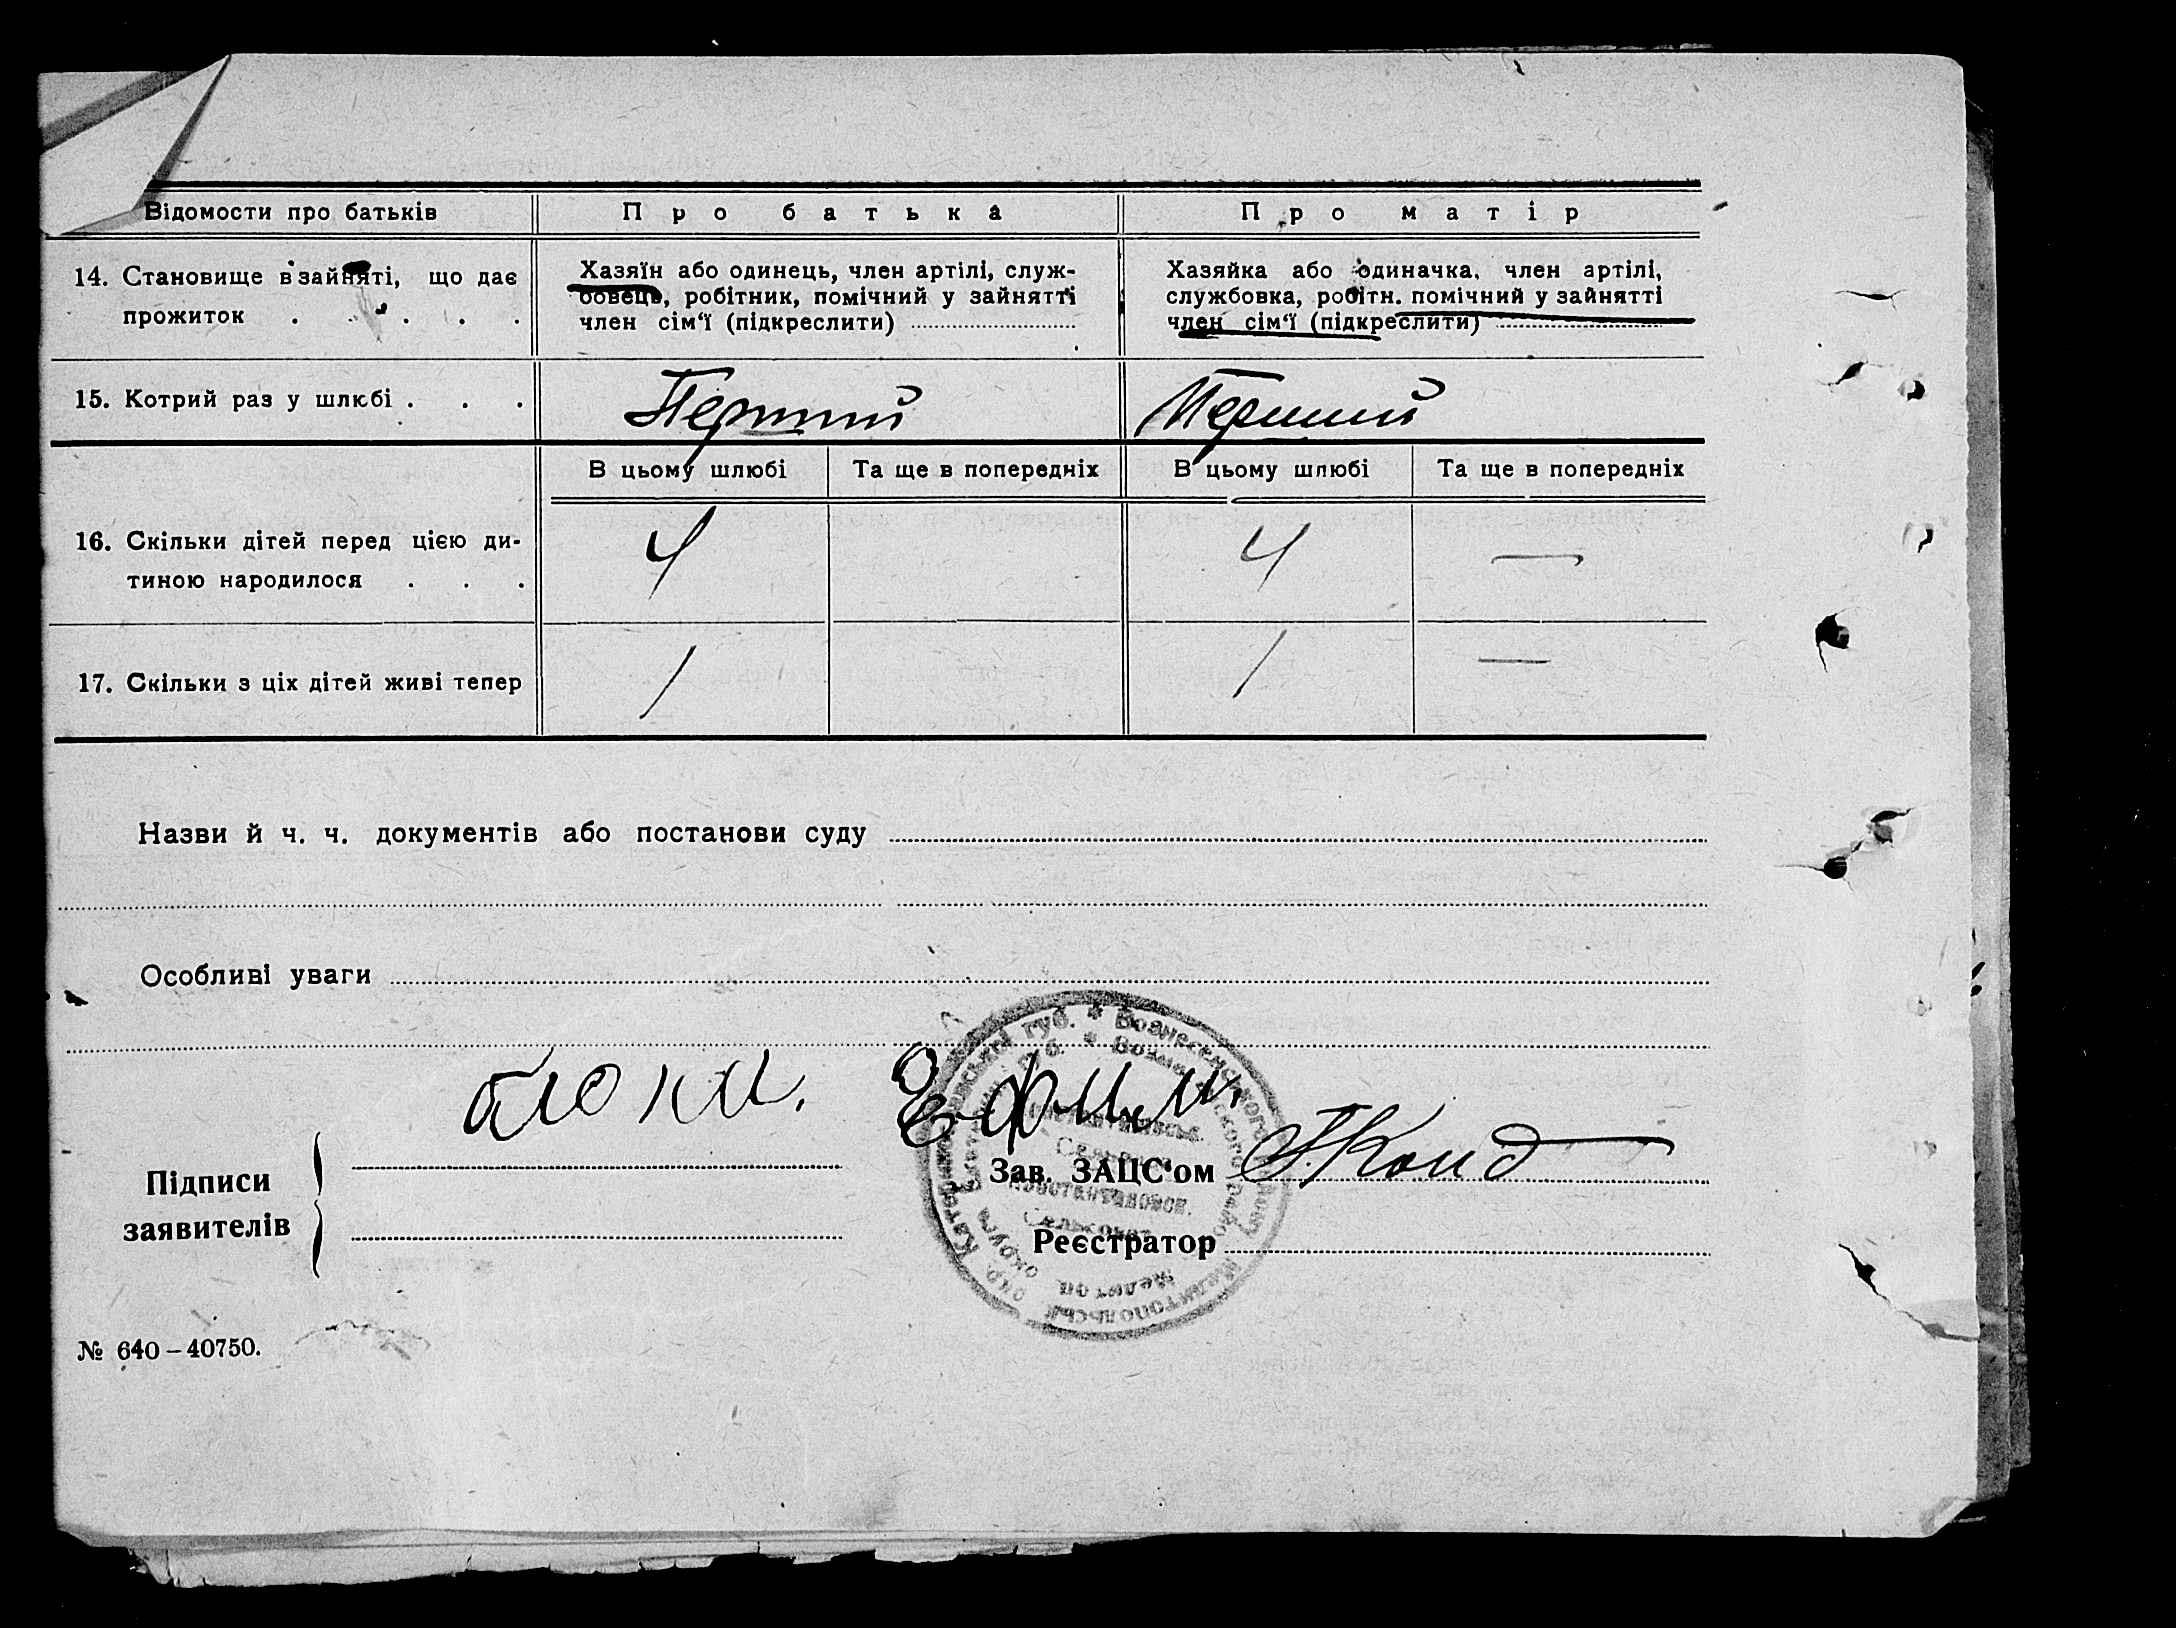 Відомости про батьків
Про батька
Про матір
14. Становище в зайняті, що дає
прожиток . . . . .
Хазяїн або одинець, член артілі, служ-
бовець, робітник, помічний у зайнятті
член сім'ї (підкреслити)
Хазяйка або одиначка, член артілі,
службовка, робітн. помічний у зайнятті
член сім'ї (підкреслити)
15. Котрий раз у шлюбі . . .
Перший
Перший
В цьому шлюбі
Та ще в попередніх
В цьому шлюбі
Та ще в попередніх
16. Скільки дітей перед цією ди-
тиною народилося . . .
4
4
—
17. Скільки з ціх дітей живі тепер
1
1
—
Назви й ч. ч. документів або постанови суду
Особливі уваги
Ефим
Підписи
заявителів
Зав. ЗАЦС'ом
Реєстратор
губ. * Вознесенського
Мелітопольськ
Мелитоп.
Сельсовет
№ 640–40750.